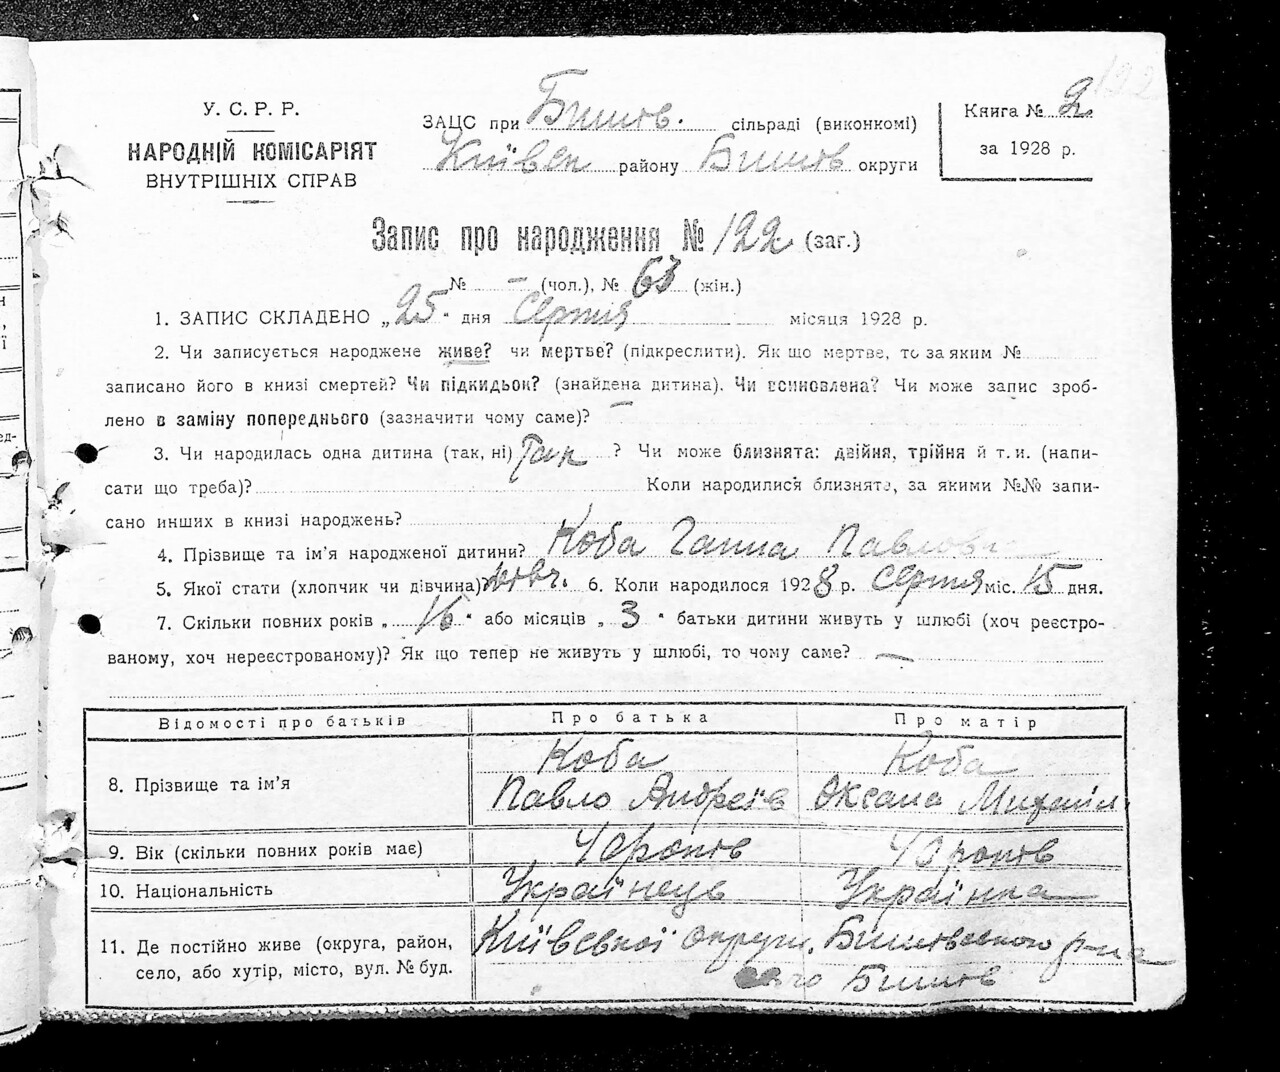 122
У. С. Р. Р.
НАРОДНІЙ КОМІСАРІЯТ
ВНУТРІШНІХ СПРАВ
ЗАЦС при Бишів. сільраді (виконкомі)
Київськ району Бишів округи
Книга № 2
за 1928 р.
Запис про народження № 122 (заг.)
№ — (чол.), № 63 (жін.)
1. ЗАПИС СКЛАДЕНО „25" дня Серпня місяця 1928 р.
2. Чи записується народжене живе? чи мертве? (підкреслити). Як що мертве, то за яким №
записано його в книзі смертей? Чи підкидьок? (знайдена дитина). Чи всиновлена? Чи може запис зроб-
лено в заміну попереднього (зазначити чому саме)? —
3. Чи народилась одна дитина (так, ні) Так ? Чи може близнята: двійня, трійня й т. и. (напи-
сати що треба)? Коли народилися близнята, за якими №№ запи-
сано инших в книзі народжень?
4. Прізвище та ім'я народженої дитини? Коба Ганна Павловна
5. Якої стати (хлопчик чи дівчина)? дівч. 6. Коли народилося 1928 р. Серпня міс. 15 дня.
7. Скільки повних років „16" або місяців „3" батьки дитини живуть у шлюбі (хоч реєстро-
ваному, хоч нереєстрованому)? Як що тепер не живуть у шлюбі, то чому саме? —
Відомості про батьків Про батька Про матір
8. Прізвище та ім'я Коба Коба
Павло Андреїв Оксана Михайл.
9. Вік (скільки повних років має) 40 років 40 років
10. Національність Українець Українка
11. Де постійно живе (округа, район, Київської округи, Бишівського р-на
село, або хутір, місто, вул. № буд. Бишів